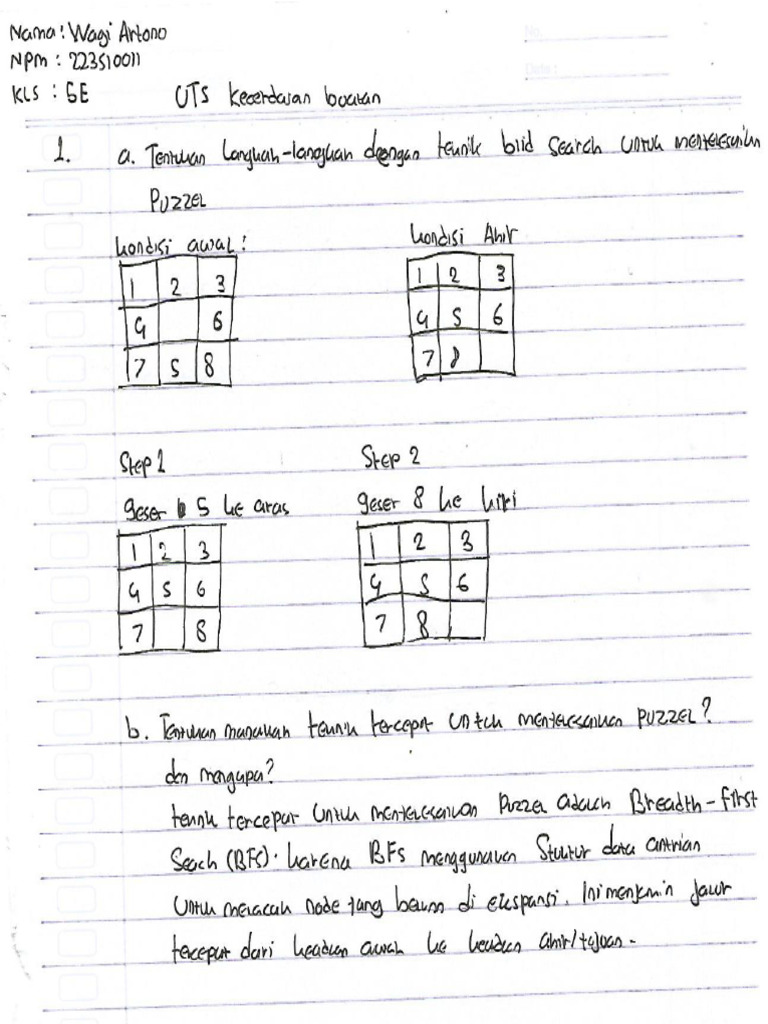 Nama : Wagi Artono
NPM : 223510011
No.
KLS : 5E UTS Kecerdasan buatan
Date :
1. a. Tentukan langkah-langkah dengan teknik blid Search untuk menyelesaikan
PUZZEL
kondisi awal : kondisi Ahir
1 2 3 1 2 3
4 6 4 5 6
7 5 8 7 8
Step 1 Step 2
geser 5 ke atas geser 8 ke kiri
1 2 3 1 2 3
4 5 6 4 5 6
7 8 7 8
b. Tentukan manakah teknik tercepat untuk menyelesaikan PUZZEL?
dan mengapa?
teknik tercepat untuk menyelesaikan Puzzel adalah Breadth-first
Seach (BFS). karena BFS menggunakan Stuktur data antrian
untuk melacak node yang belum di ekspansi. Ini menjamin jalur
tercepat dari keadaan awal ke keadaan ahir/tujuan.